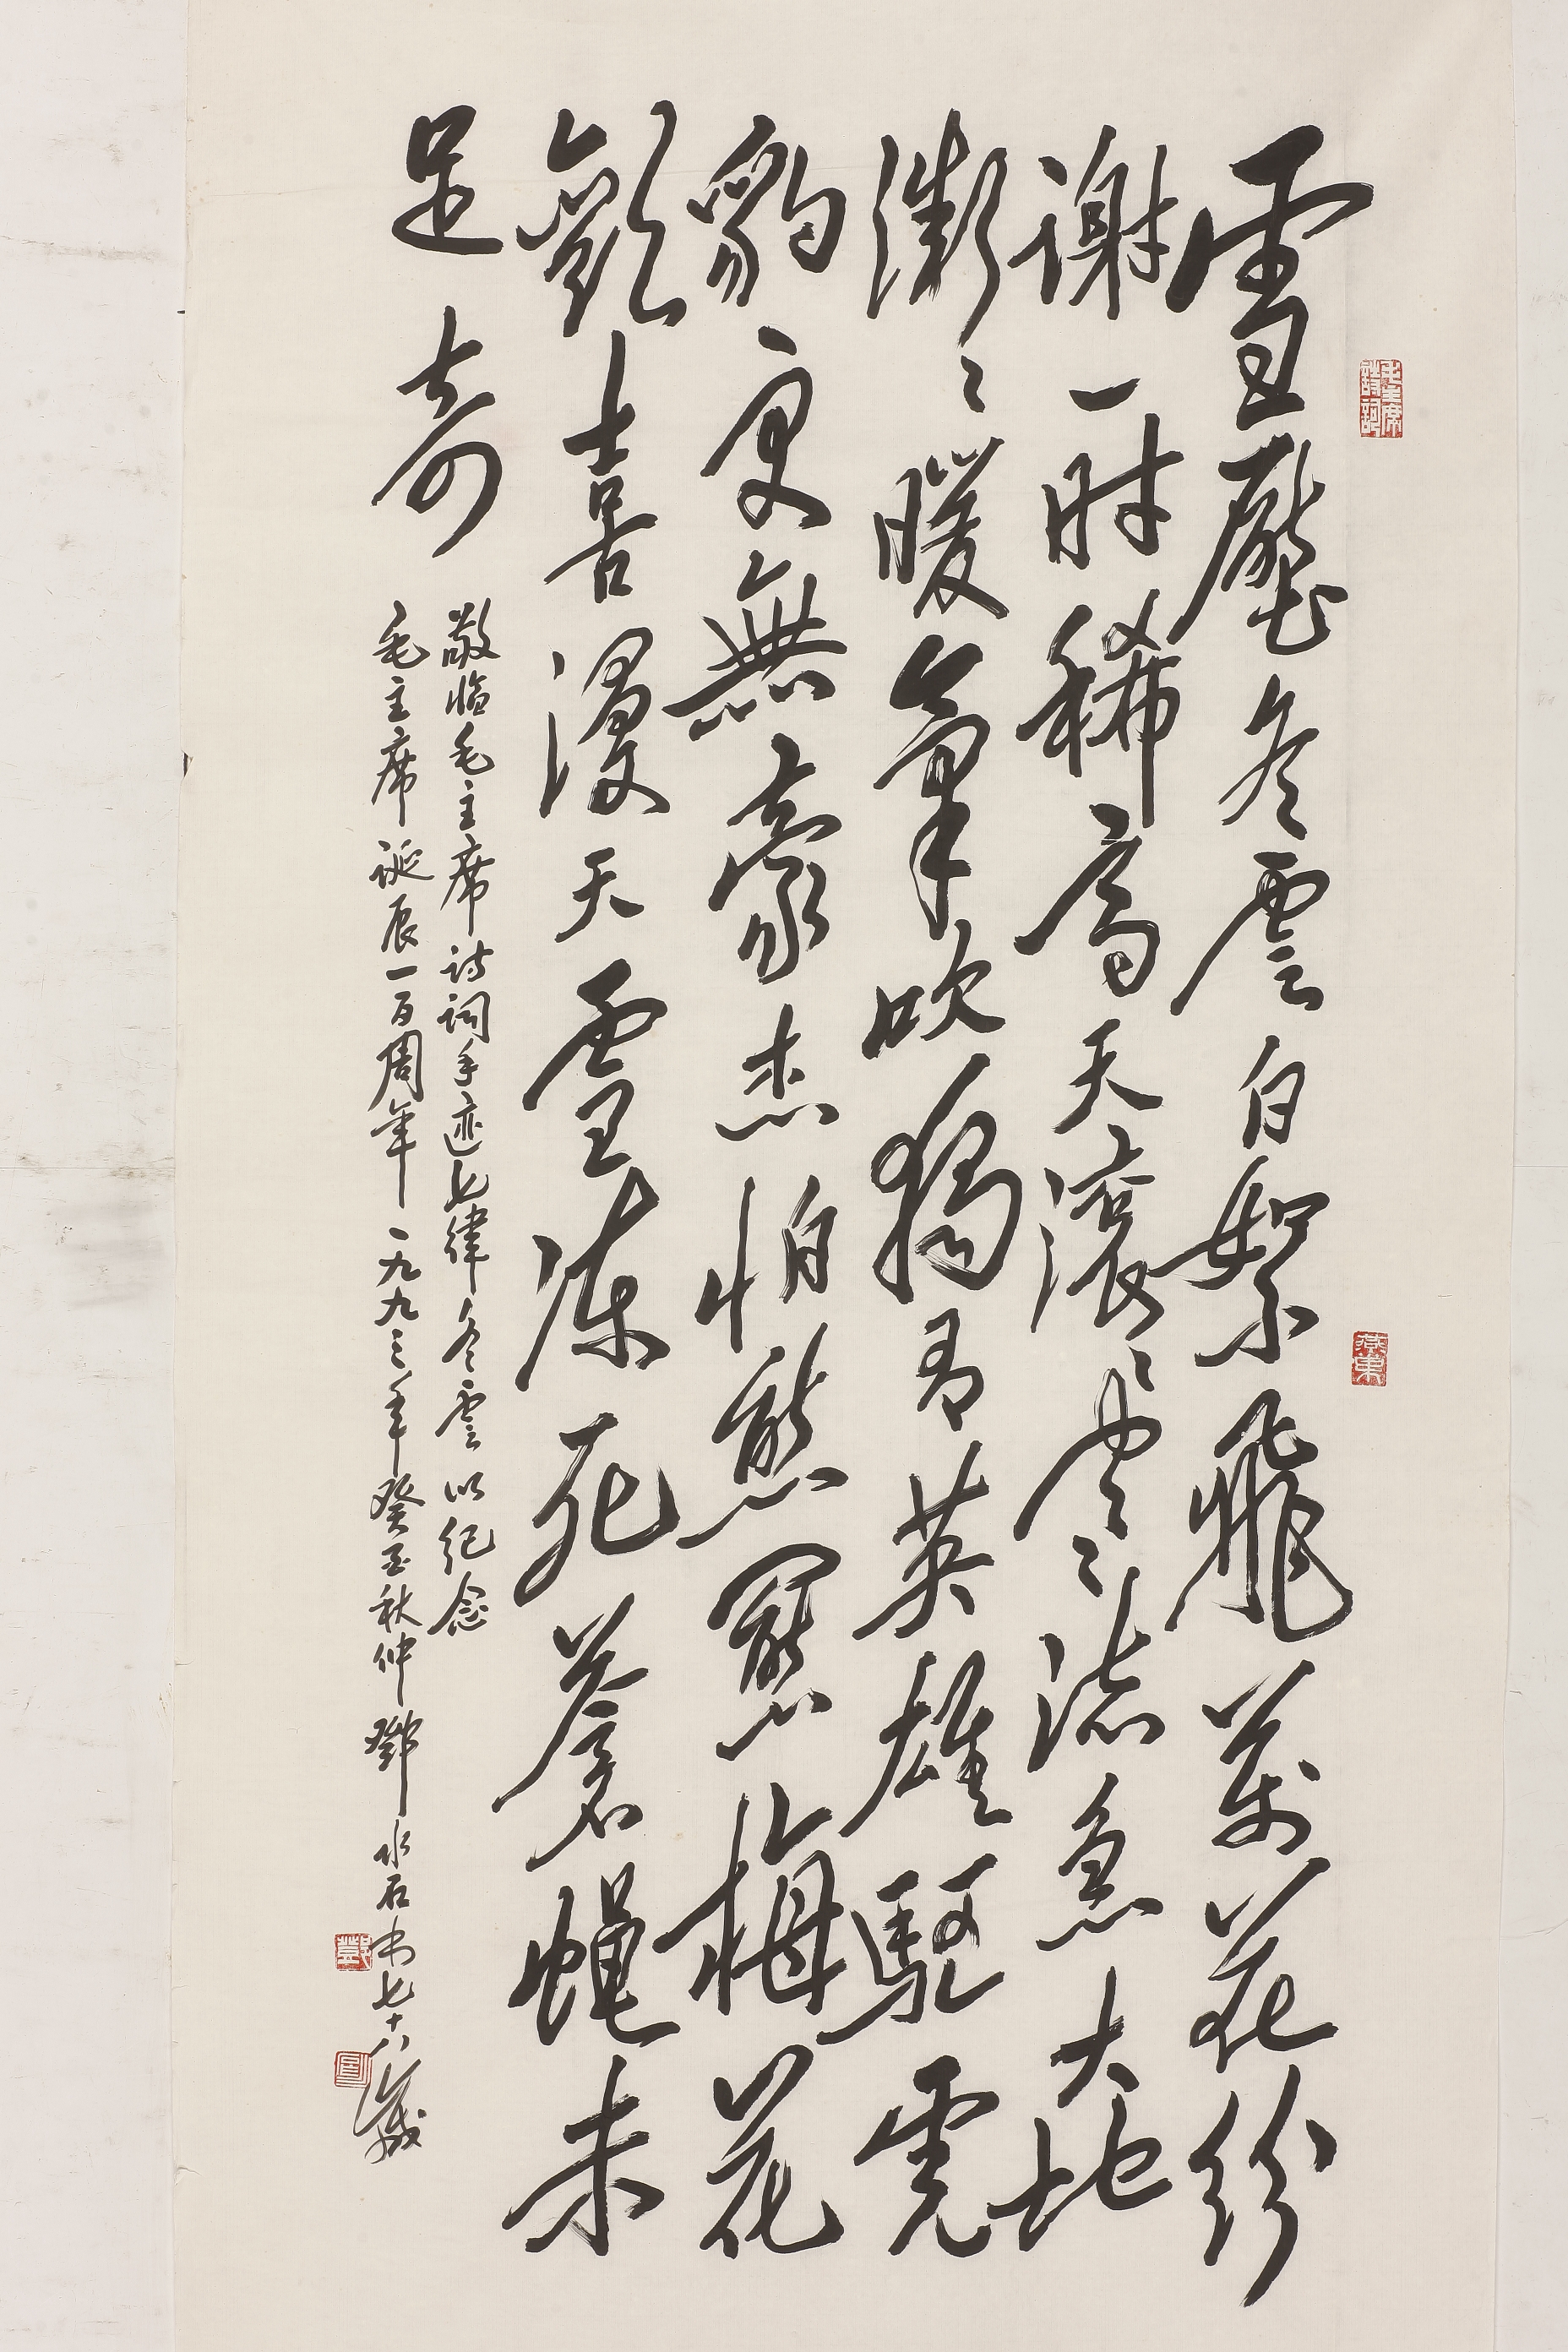 雪壓冬雲白絮飛萬花紛
謝一时稀高天滾〻寒流急大地
微〻暖氣吹獨有英雄驅虎
豹更無豪杰怕熊羆梅花
歡喜漫天雪凍死蒼蠅未
足奇
敬临毛主席诗词手迹七律冬雲以纪念
毛主席诞辰一百周年一九九三年癸酉秋仲鄧水石书七十八歲
毛主席
詩詞